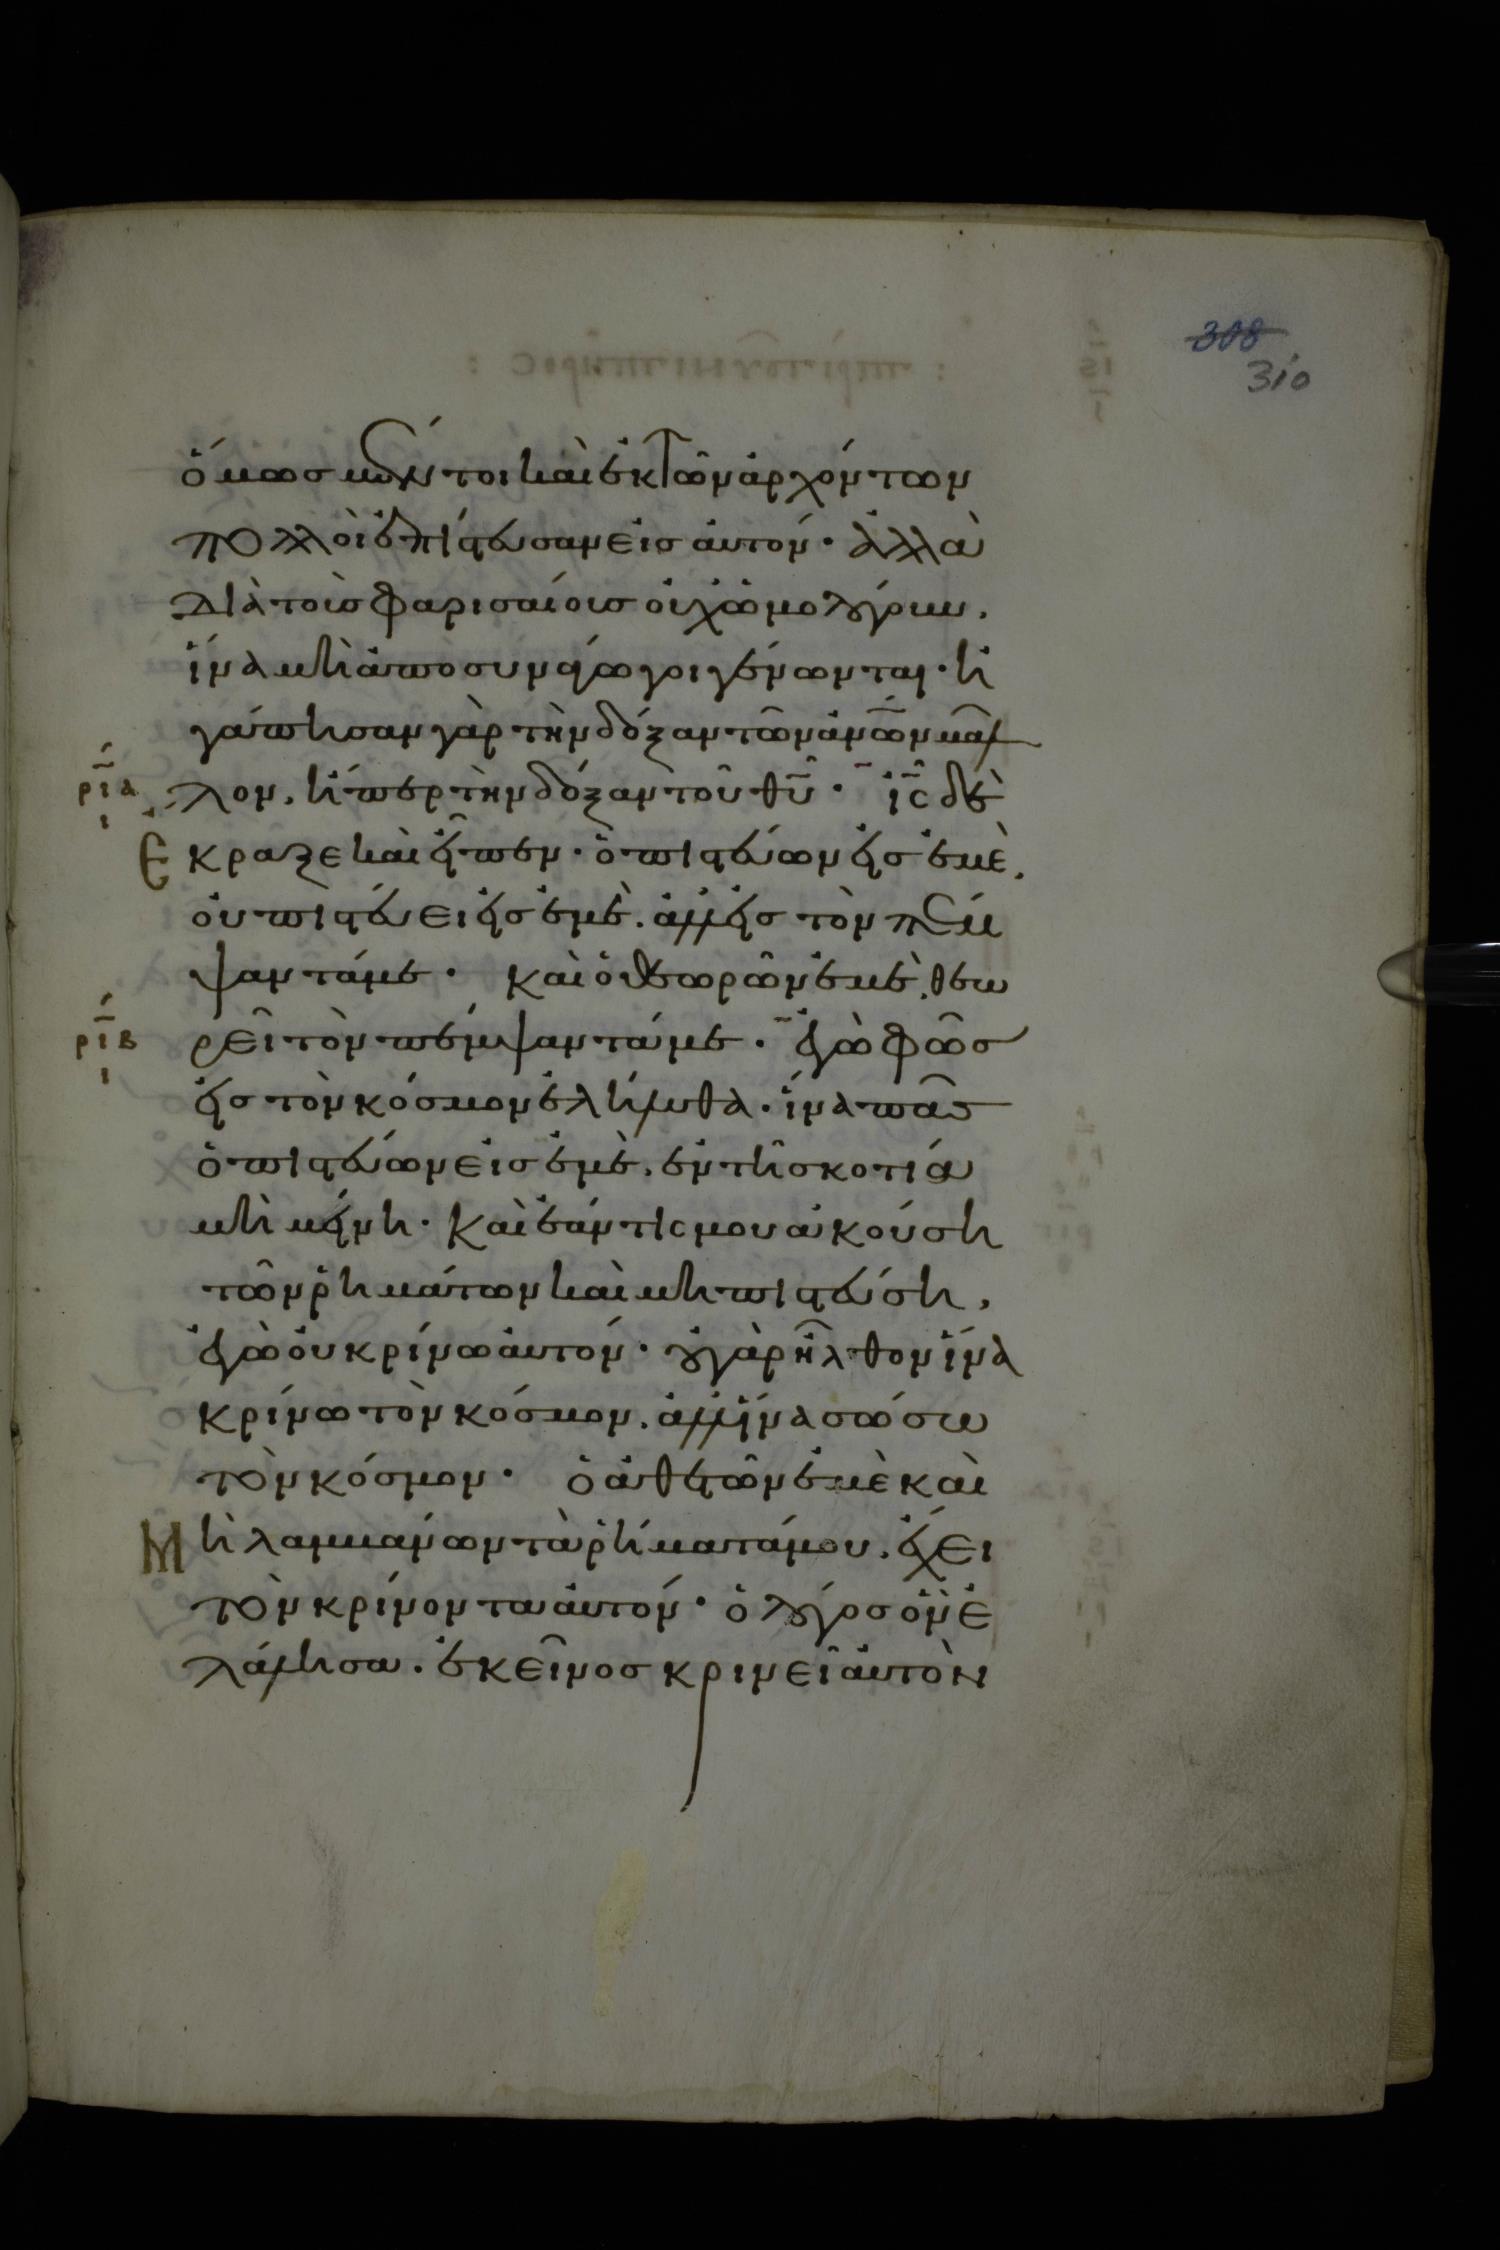 308
310
ὅμως μέντοι καὶ ἐκ τῶν ἀρχόντων
πολλοὶ ἐπίστευσαν εἰς αὐτόν· ἀλλὰ
διὰ τοὺς φαρισαίους οὐχ ὡμολόγουν,
ἵνα μὴ ἀποσυνάγωγοι γένωνται· ἠ
γάπησαν γὰρ τὴν δόξαν τῶν ἀν̅ω̅ν μᾶλ
ρια
ι
λον, ἤπερ τὴν δόξαν τοῦ θ̅υ̅· ι̅ς̅ δὲ
Ἔκραξε καὶ εἶπεν· ὁ πιστεύων εἰς ἐμὲ,
οὐ πιστεύει εἰς ἐμὲ. ἀλλ' εἰς τὸν πέμ
ψαντά με· καὶ ὁ θεωρῶν ἐμὲ, θεω
ριβ
ι
ρεῖ τὸν πέμψαντά με· ἐγὼ φῶς
εἰς τὸν κόσμον ἐλήλυθα· ἵνα πᾶς
ὁ πιστεύων εἰς ἐμὲ, ἐν τῆ σκοτία
μὴ μείνη· καὶ ἐάν τις μου ἀκούση
τῶν ῥημάτων καὶ μὴ πιστεύση,
ἐγὼ οὐ κρίνω αὐτόν· οὐ γὰρ ἦλθον ἵνα
κρίνω τὸν κόσμον. ἀλλ' ἵνα σώσω
τὸν κόσμον· ὁ ἀθετῶν ἐμὲ καὶ
Μὴ λαμβάνων τὰ ῥήματά μου, ἔχει
τὸν κρίνοντα αὐτόν· ὁ λόγος ὃν ἐ
λάλησα. ἐκεῖνος κρινεῖ αὐτὸν